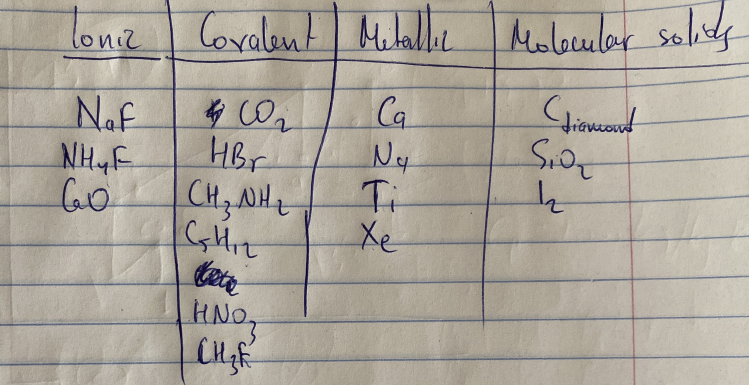 Ionic Covalent Metallic Molecular solids
NaF CO2 Ca Cdiamond
NH4F HBr Na SiO2
CaO CH3NH2 Ti I2
C5H12 Xe
HNO3
CH3F